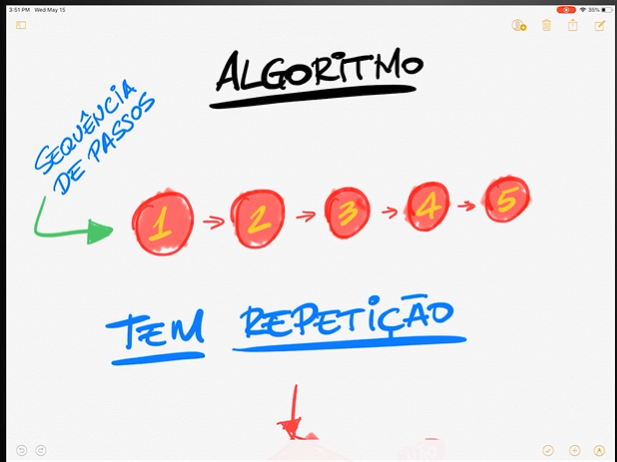 3:51 PM Wed May 15
35%
ALGORITMO
SEQUÊNCIA
DE PASSOS
1 → 2 → 3 → 4 → 5
TEM REPETIÇÃO